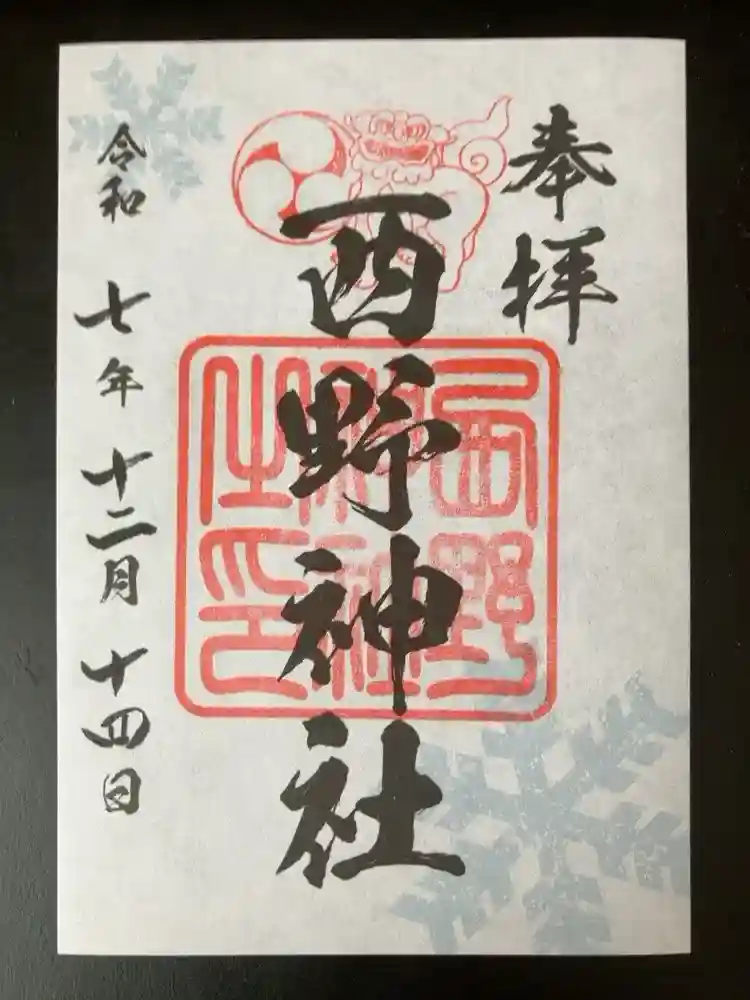 奉拝
西野神社
西野
神社
之印
令和七年十二月十四日